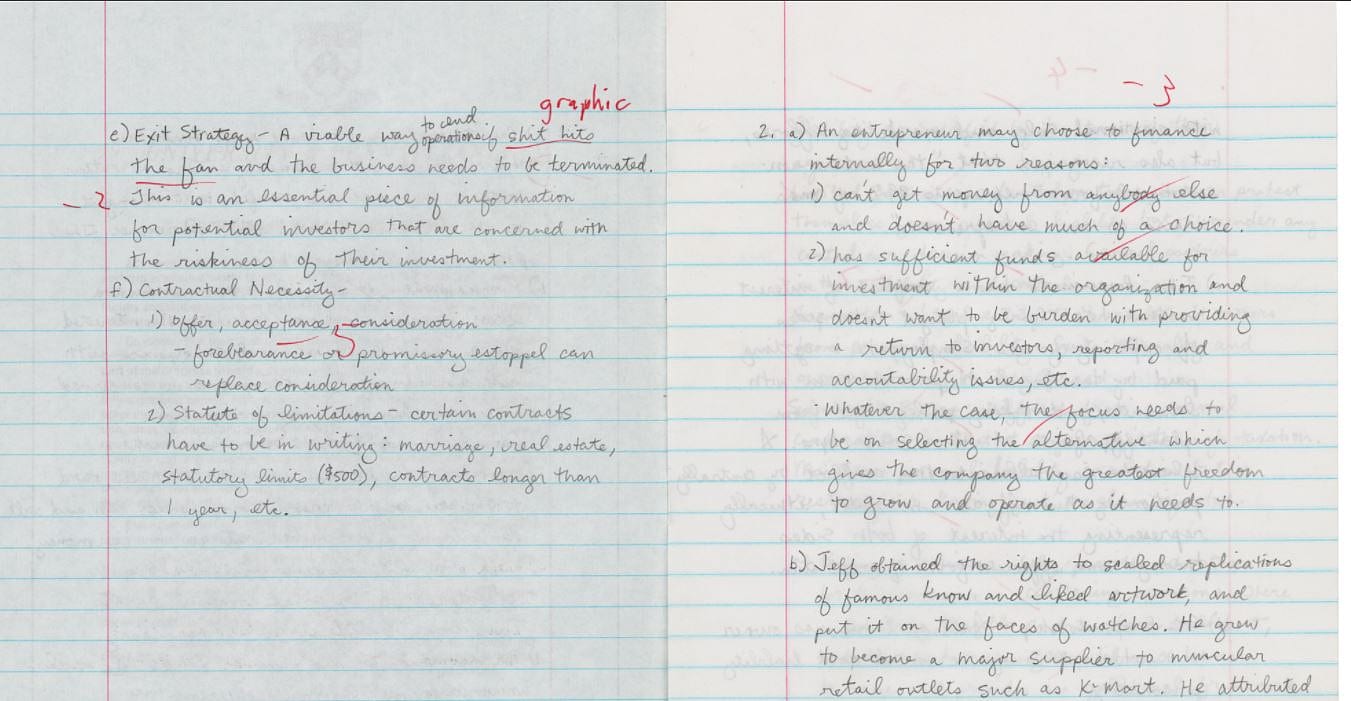 graphic
e) Exit Strategy - A viable way to end operations if shit hits
the fan and the business needs to be terminated.
-2 This is an essential piece of information
for potential investors that are concerned with
the riskiness of their investment.
f) Contractual Necessity-
1) offer, acceptance, consideration
- forebearance or promissory estoppel can
replace consideration
2) Statute of limitations - certain contracts
have to be in writing: marriage, real estate,
statutory limits ($500), contracts longer than
1 year, etc.
-3
2. a) An entrepreneur may choose to finance
internally for two reasons:
1) can't get money from anybody else
and doesn't have much of a choice.
2) has sufficient funds available for
investment within the organization and
doesn't want to be burden with providing
a return to investors, reporting and
accountability issues, etc.
· Whatever the case, the focus needs to
be on selecting the alternative which
gives the company the greatest freedom
to grow and operate as it needs to.
b) Jeff obtained the rights to scaled replications
of famous know and liked artwork, and
put it on the faces of watches. He grew
to become a major supplier to muscular
retail outlets such as K-mart. He attributed